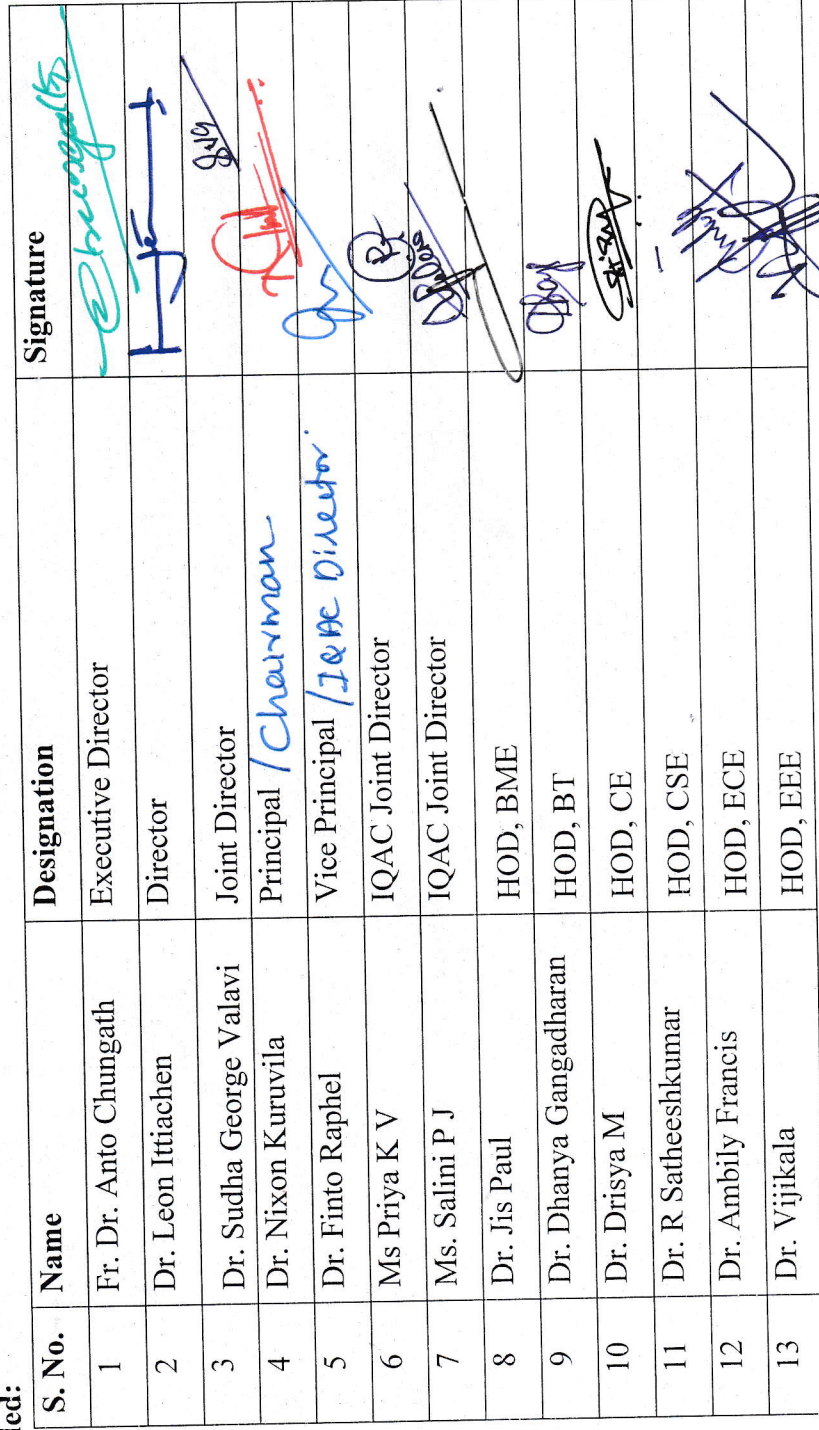 ded:
S. No. Name Designation Signature
1 Fr. Dr. Anto Chungath Executive Director
2 Dr. Leon Ittiachen Director
3 Dr. Sudha George Valavi Joint Director
4 Dr. Nixon Kuruvila Principal / Chairman
5 Dr. Finto Raphel Vice Principal / IQAC Director
6 Ms Priya K V IQAC Joint Director
7 Ms. Salini P J IQAC Joint Director
8 Dr. Jis Paul HOD, BME
9 Dr. Dhanya Gangadharan HOD, BT
10 Dr. Drisya M HOD, CE
11 Dr. R Satheeshkumar HOD, CSE –
12 Dr. Ambily Francis HOD, ECE
13 Dr. Vijikala HOD, EEE